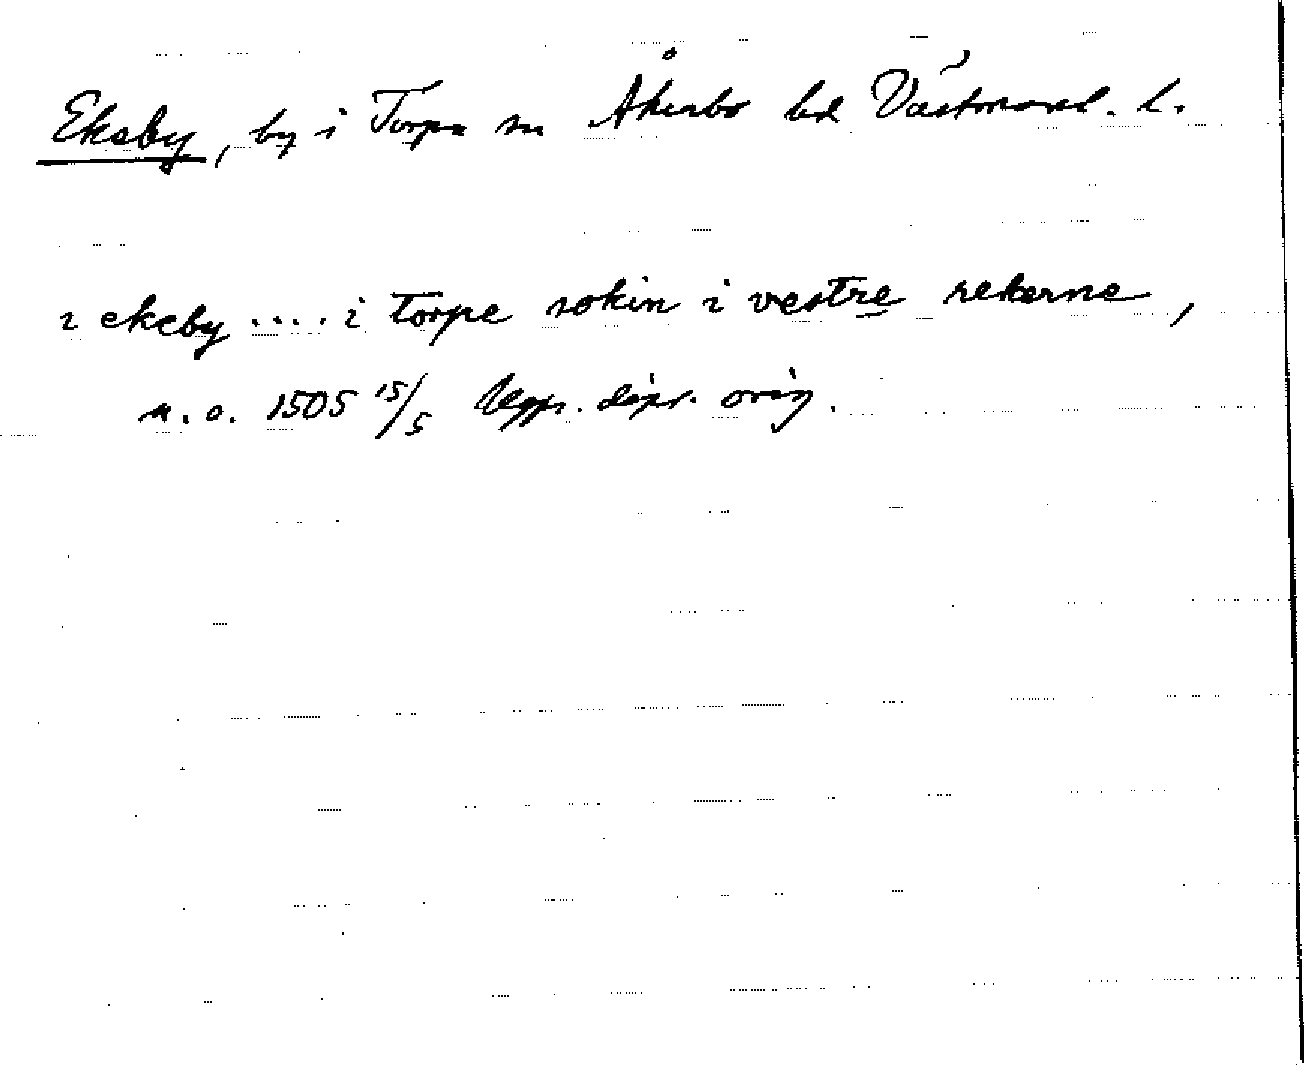 Ekeby, by i Torpa sn Åkerbo hd Västmanl. l.
i ekeby .... i torpe sokin i vestre rekerne,
n. o. 1505 15/5 Uppr. depr. orig.